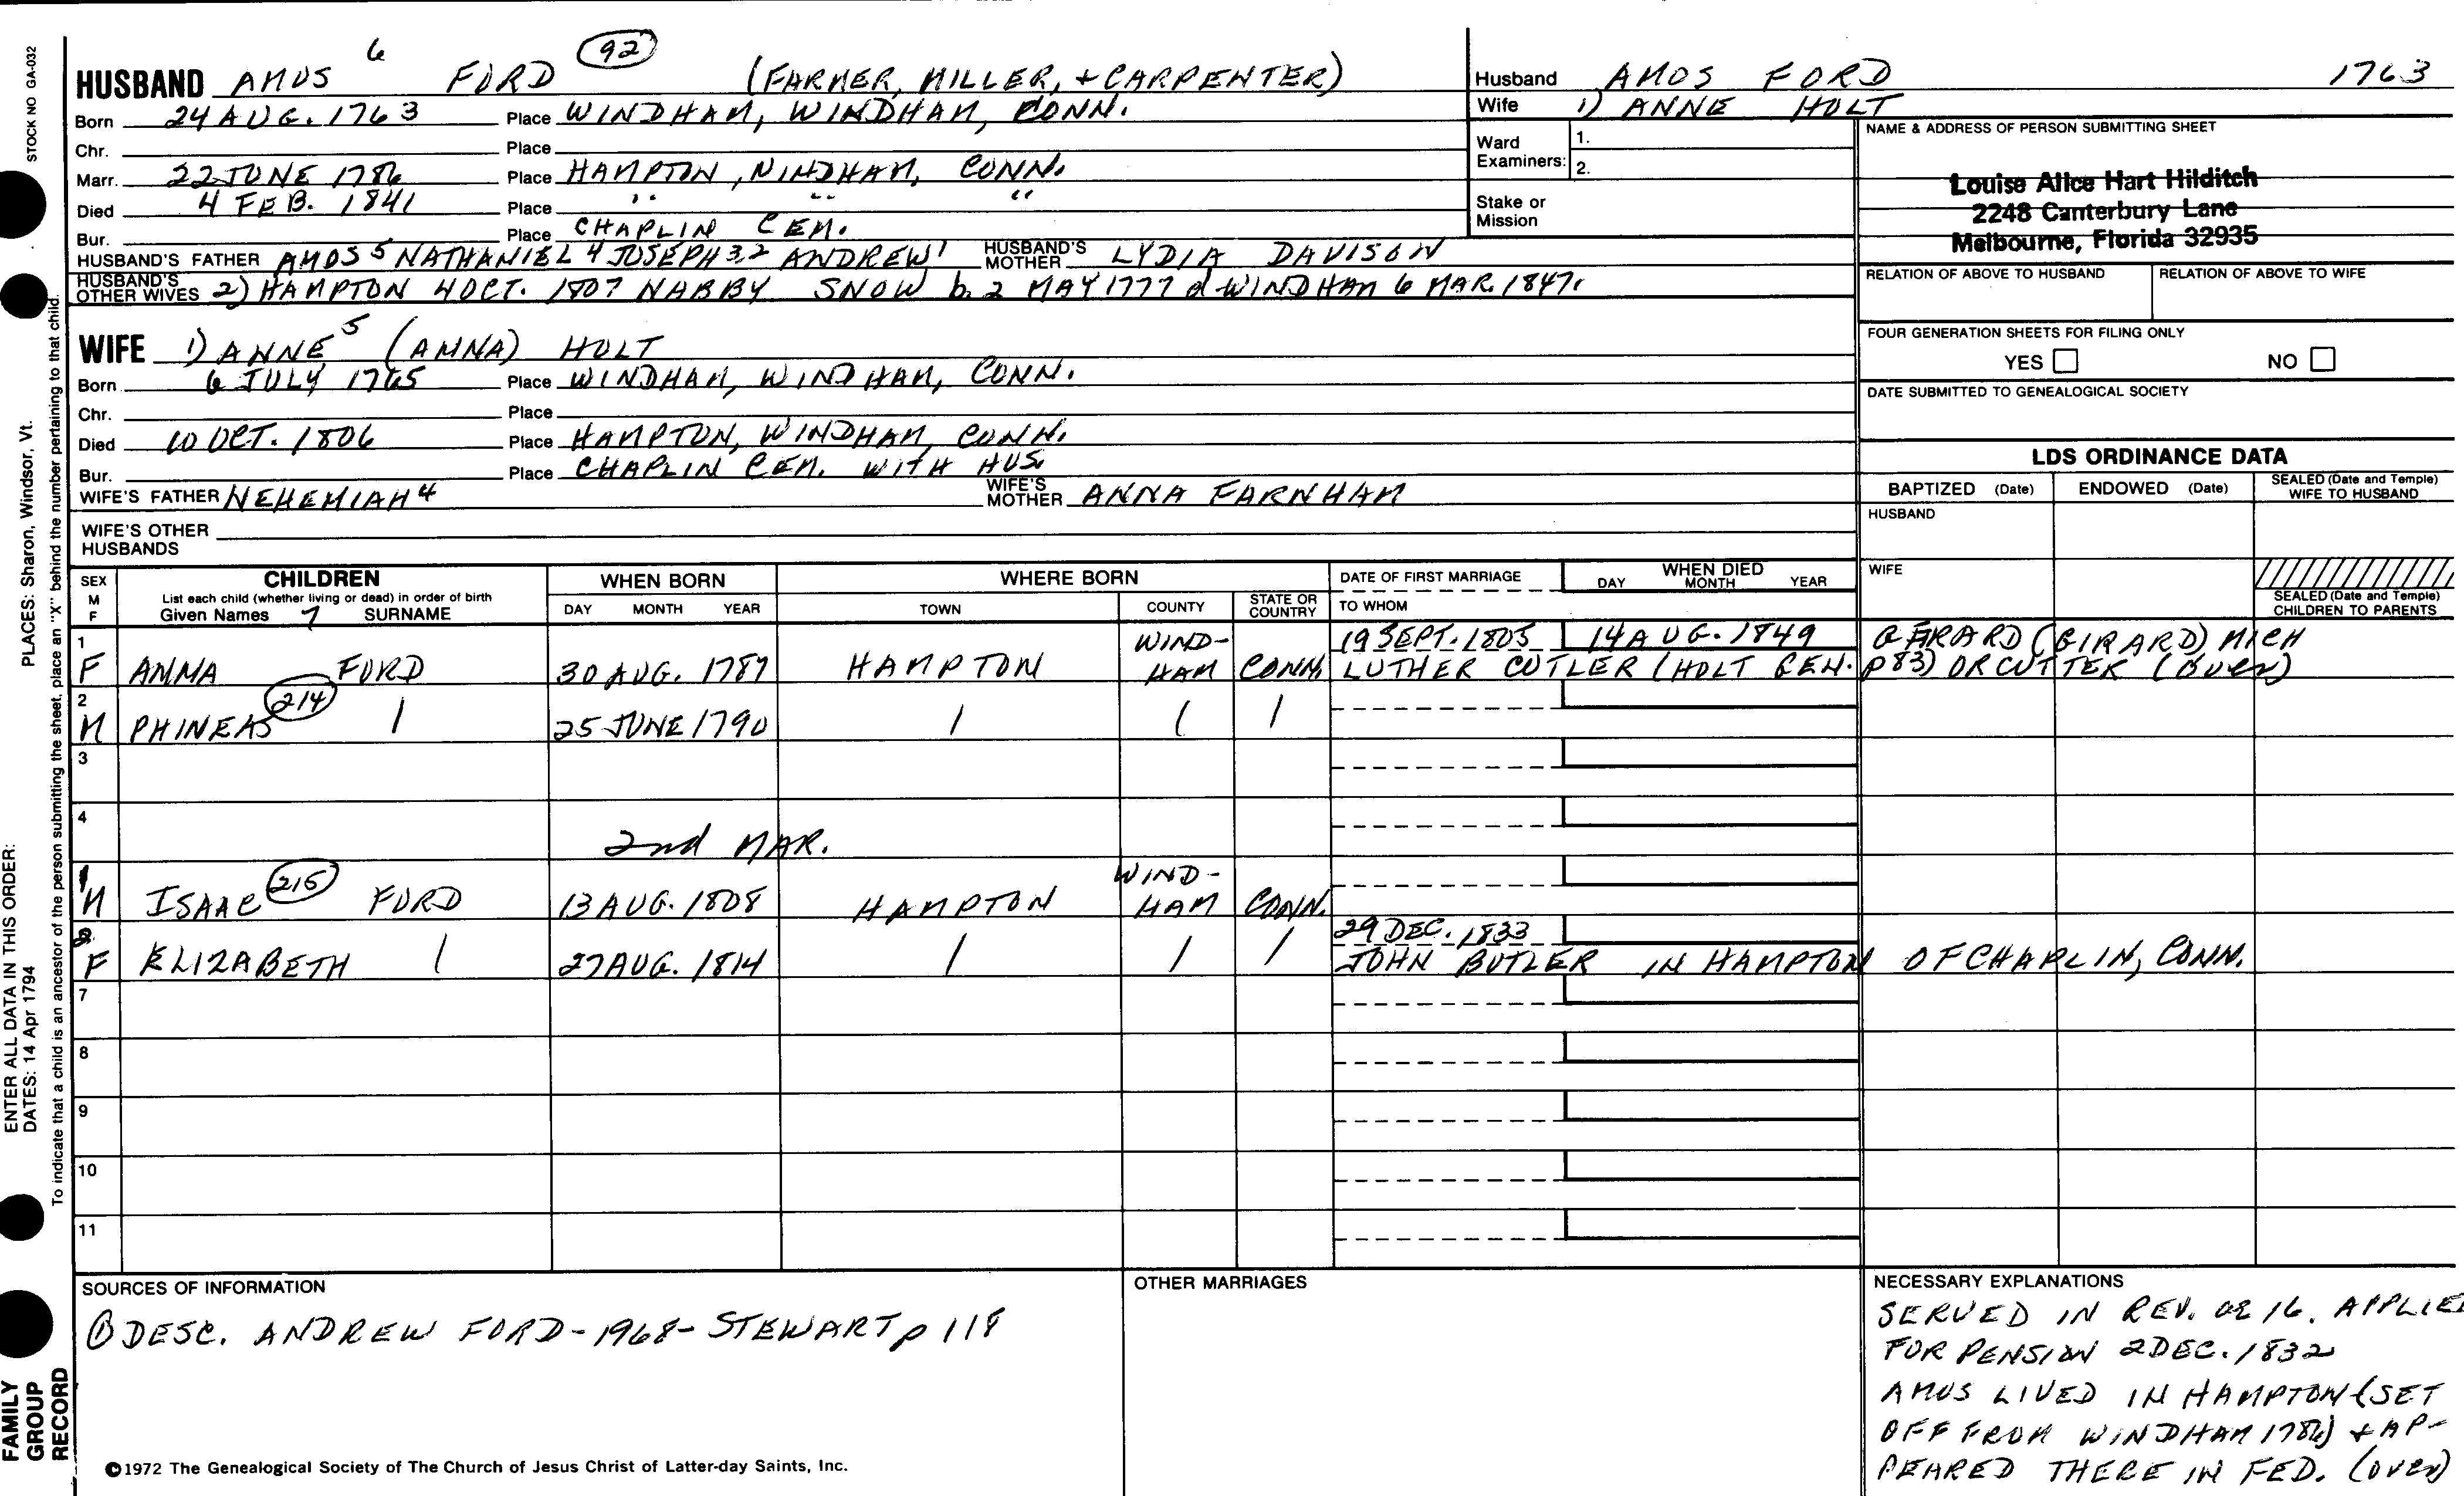 STOCK NO GA-032
6 92
HUSBAND AMOS FORD (FARMER, MILLER, + CARPENTER)
Born 24 AUG. 1763 Place WINDHAM, WINDHAM, CONN.
Chr. Place
Marr. 22 JUNE 1786 Place HAMPTON, WINDHAM, CONN.
Died 4 FEB. 1841 Place " " "
Bur. Place CHAPLIN CEM.
HUSBAND'S FATHER AMOS 5 NATHANIEL 4 JOSEPH 3,2 ANDREW 1 HUSBAND'S MOTHER LYDIA DAVISON
HUSBAND'S OTHER WIVES 2) HAMPTON 4 OCT. 1807 NABBY SNOW b. 2 MAY 1777 d WINDHAM 6 MAR. 1847.
WIFE 1) ANNE 5 (ANNA) HOLT
Born 6 JULY 1765 Place WINDHAM, WINDHAM, CONN.
Chr. Place
Died 10 OCT. 1806 Place HAMPTON, WINDHAM, CONN.
Bur. Place CHAPLIN CEM. WITH HUS.
WIFE'S FATHER NEHEMIAH 4 WIFE'S MOTHER ANNA FARNHAM
WIFE'S OTHER
HUSBANDS
Husband AMOS FORD 1763
Wife 1) ANNE HOLT
Ward
Examiners:
1.
2.
Stake or
Mission
NAME & ADDRESS OF PERSON SUBMITTING SHEET
Louise Alice Hart Hilditch
2248 Canterbury Lane
Melbourne, Florida 32935
RELATION OF ABOVE TO HUSBAND RELATION OF ABOVE TO WIFE
FOUR GENERATION SHEETS FOR FILING ONLY
YES NO
DATE SUBMITTED TO GENEALOGICAL SOCIETY
LDS ORDINANCE DATA
BAPTIZED (Date) ENDOWED (Date) SEALED (Date and Temple) WIFE TO HUSBAND
HUSBAND
WIFE
SEALED (Date and Temple) CHILDREN TO PARENTS
SEX M F
CHILDREN
List each child (whether living or dead) in order of birth
Given Names SURNAME
WHEN BORN
DAY MONTH YEAR
WHERE BORN
TOWN COUNTY STATE OR COUNTRY
DATE OF FIRST MARRIAGE
TO WHOM
WHEN DIED
DAY MONTH YEAR
1 WIND- 19 SEPT. 1805 14 AUG. 1849 GERARD (GIRARD) MICH
F ANNA FORD 30 AUG. 1787 HAMPTON HAM CONN. LUTHER CUTLER (HOLT GEN. p 83) OR CUTTER (OVER)
2 214
M PHINEAS 25 JUNE 1790
3
4
2nd MAR.
1 215 WIND-
M ISAAC FORD 13 AUG. 1808 HAMPTON HAM CONN.
2 29 DEC. 1833
F ELIZABETH 27 AUG. 1814 JOHN BUTLER IN HAMPTON OF CHAPLIN, CONN.
7
8
9
10
11
SOURCES OF INFORMATION
① DESC. ANDREW FORD-1968-STEWART p 118
OTHER MARRIAGES
NECESSARY EXPLANATIONS
SERVED IN REV. 16. APPLIED
FOR PENSION 2 DEC. 1832
AMOS LIVED IN HAMPTON (SET
OFF FROM WINDHAM 1786) + AP-
PEARED THERE IN FED. (OVER)
©1972 The Genealogical Society of The Church of Jesus Christ of Latter-day Saints, Inc.
ENTER ALL DATA IN THIS ORDER:
DATES: 14 Apr 1794
PLACES: Sharon, Windsor, Vt.
To indicate that a child is an ancestor of the person submitting the sheet, place an "X" behind the number pertaining to that child.
FAMILY
GROUP
RECORD